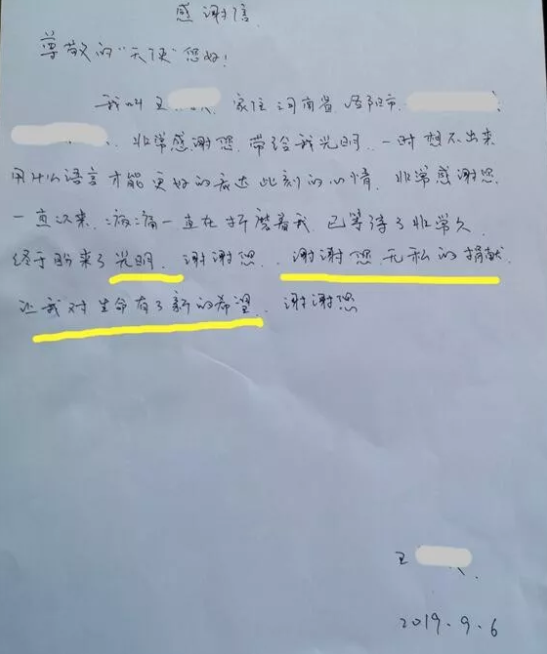 感谢信
尊敬的“天使”您好!
我叫王 家住河南省洛阳市
非常感谢您,带给我光明,一时想不出来
用什么语言才能更好的表达此刻的心情,非常感谢您
一直以来,病痛一直在折磨着我,已等待了非常久,
终于盼来了光明,谢谢您,谢谢您无私的捐献
让我对生命有了新的希望,谢谢您
王
2019.9.6